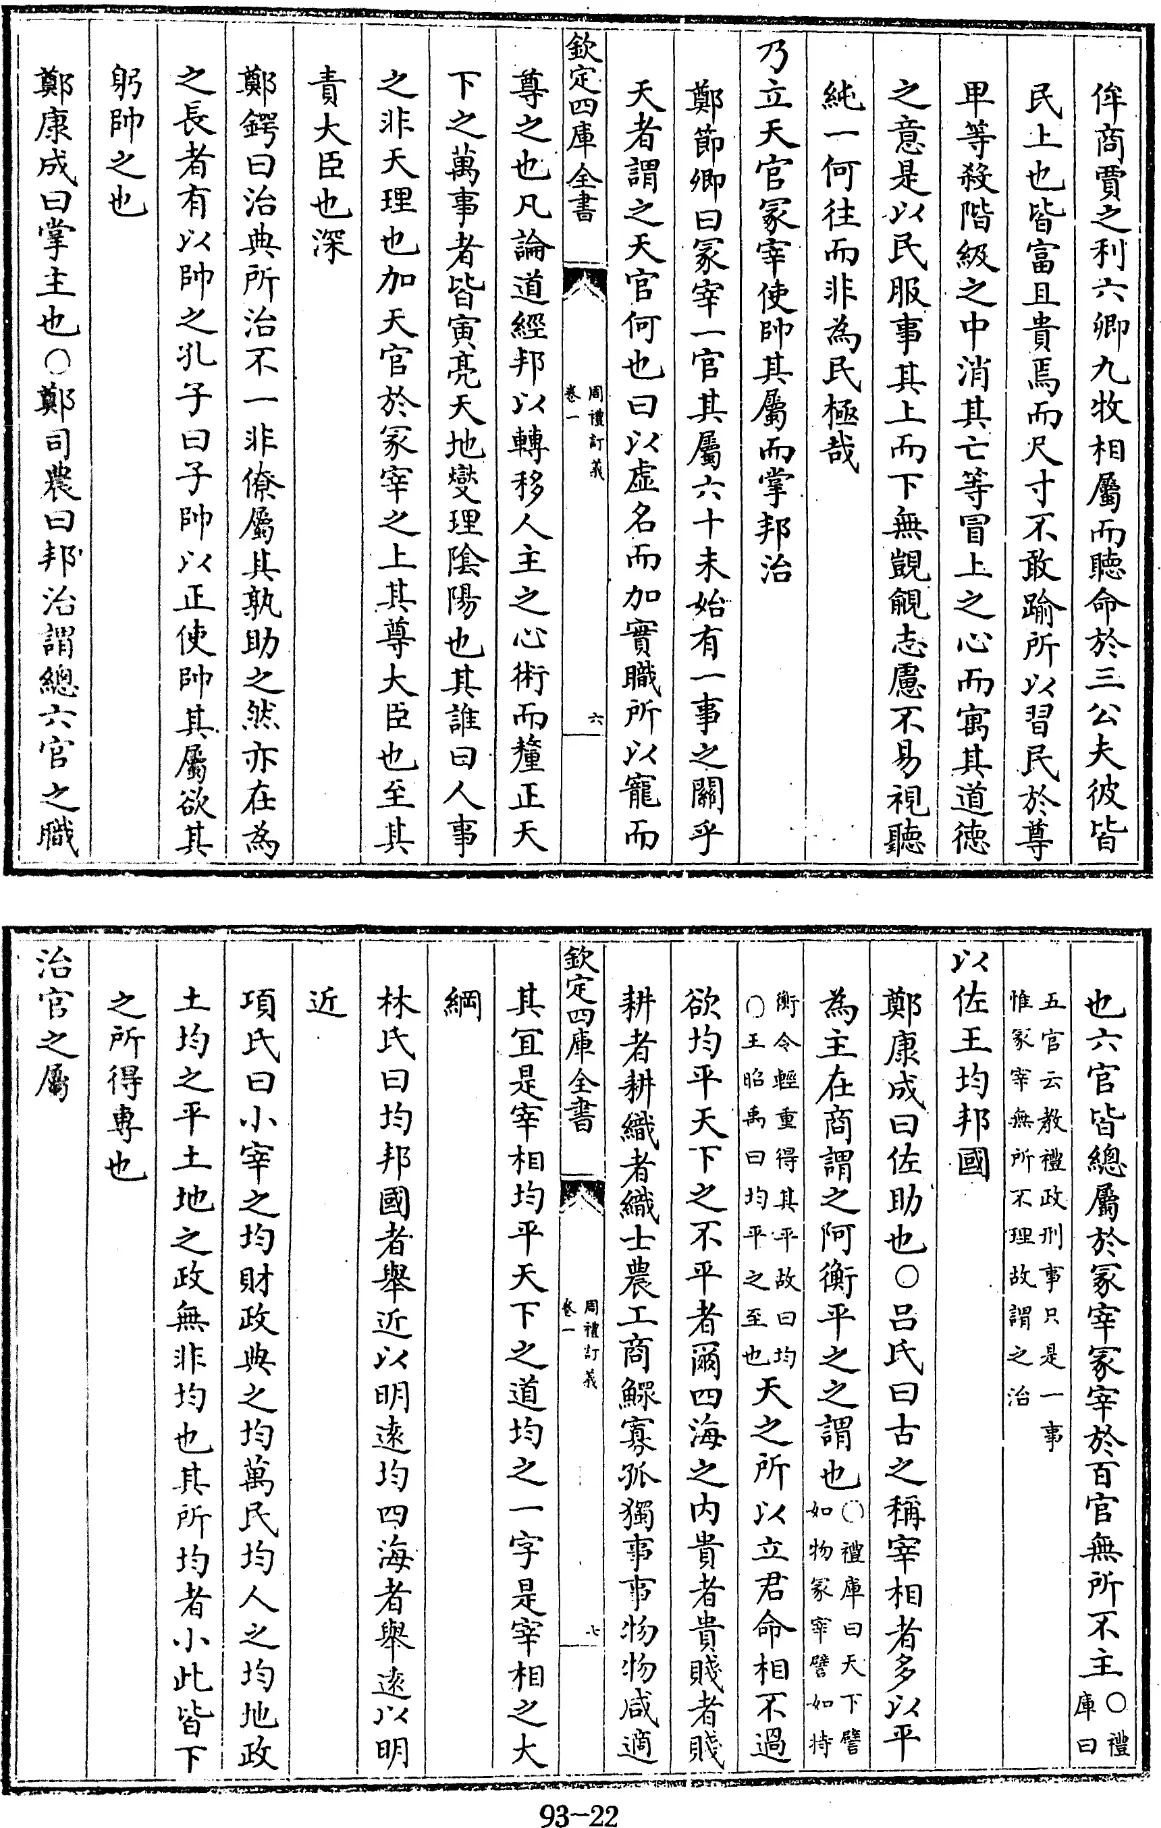 侔商賈之利六卿九牧相屬而聽命於三公夫彼皆
民上也皆富且貴焉而尺寸不敢踰所以習民於尊
卑等殺階級之中消其亡等冒上之心而寓其道德
之意是以民服事其上而下無覬覦志慮不易視聽
純一何往而非為民極哉
乃立天官冢宰使帥其屬而掌邦治
鄭節卿曰冢宰一官其屬六十未始有一事之關乎
天者謂之天官何也曰以虛名而加實職所以寵而
欽定四庫全書
周禮訂義
卷一
六
尊之也凡論道經邦以轉移人主之心術而釐正天
下之萬事者皆寅亮天地燮理陰陽也其誰曰人事
之非天理也加天官於冢宰之上其尊大臣也至其
責大臣也深
鄭鍔曰治典所治不一非僚屬其孰助之然亦在為
之長者有以帥之孔子曰子帥以正使帥其屬欲其
躬帥之也
鄭康成曰掌主也○鄭司農曰邦治謂總六官之職
也六官皆總屬於冢宰冢宰於百官無所不主○禮
庫曰
五官云教禮政刑事只是一事
惟冢宰無所不理故謂之治
以佐王均邦國
鄭康成曰佐助也○呂氏曰古之稱宰相者多以平
為主在商謂之阿衡平之之謂也○禮庫曰天下譬
如物冢宰譬如持
衡令輕重得其平故曰均
○王昭禹曰均平之至也天之所以立君命相不過
欲均平天下之不平者爾四海之內貴者貴賤者賤
耕者耕織者織士農工商鰥寡孤獨事事物物咸適
欽定四庫全書
周禮訂義
卷一
七
其宜是宰相均平天下之道均之一字是宰相之大
綱
林氏曰均邦國者舉近以明遠均四海者舉遠以明
近
項氏曰小宰之均財政典之均萬民均人之均地政
土均之平土地之政無非均也其所均者小此皆下
之所得專也
治官之屬
93-22